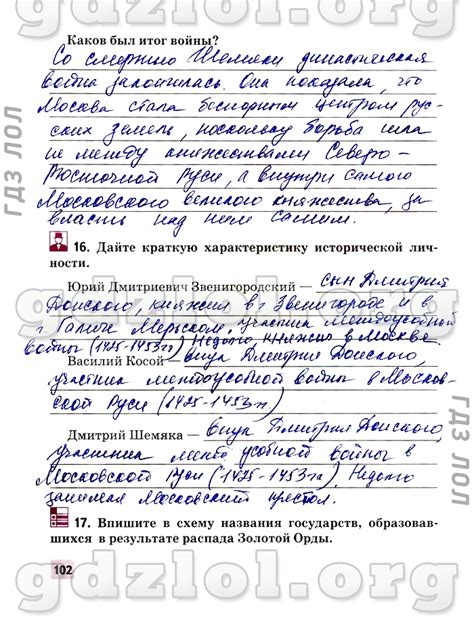 gdzlol.org
Каков был итог войны?
Со смертью Шемяки династическая
война закончилась. Она показала, что
Москва стала бесспорным центром рус-
ских земель, поскольку борьба шла
не между княжествами Северо-
Восточной Руси, а внутри самого
Московского великого княжества, за
власть над ним самим.
16. Дайте краткую характеристику исторической лич-
ности.
Юрий Дмитриевич Звенигородский — сын Дмитрия
Донского княжил в г. Звенигороде и в
г. Галиче Мерьском, участник междоусобной
войны (1425-1453гг) Недолго княжил в Москве.
Василий Косой — внук Дмитрия Донского,
участник междоусобной войны в Москов-
ской Руси (1425-1453гг)
Дмитрий Шемяка — внук Дмитрия Донского,
участник междоусобной войны в
Московской Руси (1425-1453гг), Недолго
занимал Московский престол.
17. Впишите в схему названия государств, образовав-
шихся в результате распада Золотой Орды.
102
gdzlol.org
гдз лол
гдз лол